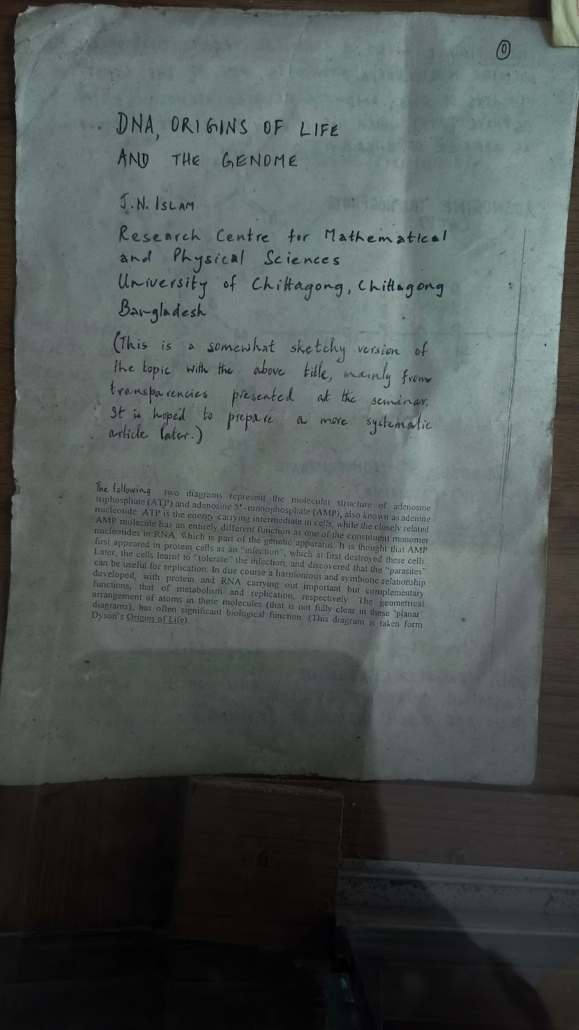 0
DNA, ORIGINS OF LIFE
AND THE GENOME
J.N. ISLAM
Research Centre for Mathematical
and Physical Sciences
University of Chittagong, Chittagong
Bangladesh
(This is a somewhat sketchy version of
the topic with the above title, mainly from
transparencies presented at the seminar.
It is hoped to prepare a more systematic
article later.)
The following two diagrams represent the molecular structure of adenosine
triphosphate (ATP) and adenosine 5'-monophosphate (AMP), also known as adenine
nucleotide. ATP is the energy-carrying intermediate in cells, while the closely related
AMP molecule has an entirely different function as one of the constituent monomer
nucleotides in RNA, which is part of the genetic apparatus. It is thought that AMP
first appeared in protein cells as an "infection", which at first destroyed these cells.
Later, the cells learnt to "tolerate" the infection, and discovered that the "parasites"
can be useful for replication. In due course a harmonious and symbiotic relationship
developed, with protein and RNA carrying out important but complementary
functions, that of metabolism and replication, respectively. The geometrical
arrangement of atoms in these molecules (that is not fully clear in these 'planar'
diagrams), has often significant biological function. (This diagram is taken form
Dyson's Origins of Life)